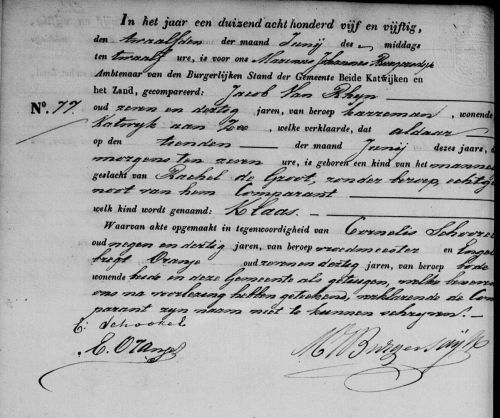 In het jaar een duizend acht honderd vijf en vijftig,
den twaalfden der maand Junij des middags
ten twaalf ure, is voor ons Marinus Johannes
Ambtenaar van den Burgerlijken Stand der Gemeente Beide Katwijken en
het Zand, gecompareerd: Jacob Van Rhyn
No. 77. oud zeven en dertig jaren, van beroep karreman, wonende
Katwyk aan Zee, welke verklaarde, dat aldaar
op den tienden der maand Junij dezes jaars, des
morgens ten zeven ure, is geboren een kind van het manne
geslacht van Rachel de Groot, zonder beroep, echtge
noot van hem Comparant
welk kind wordt genaamd: Klaas.
Waarvan akte opgemaakt in tegenwoordigheid van Cornelis Schoorel
oud negen en dertig jaren, van beroep en Engel
bregt Oranje oud zeven en dertig jaren, van beroep bode
wonende beide in deze Gemeente als getuigen, welke benevens
ons na voorlezing hebben geteekend, verklarende de Com
parant zyn naam niet te kunnen schryven.
E. Oranje